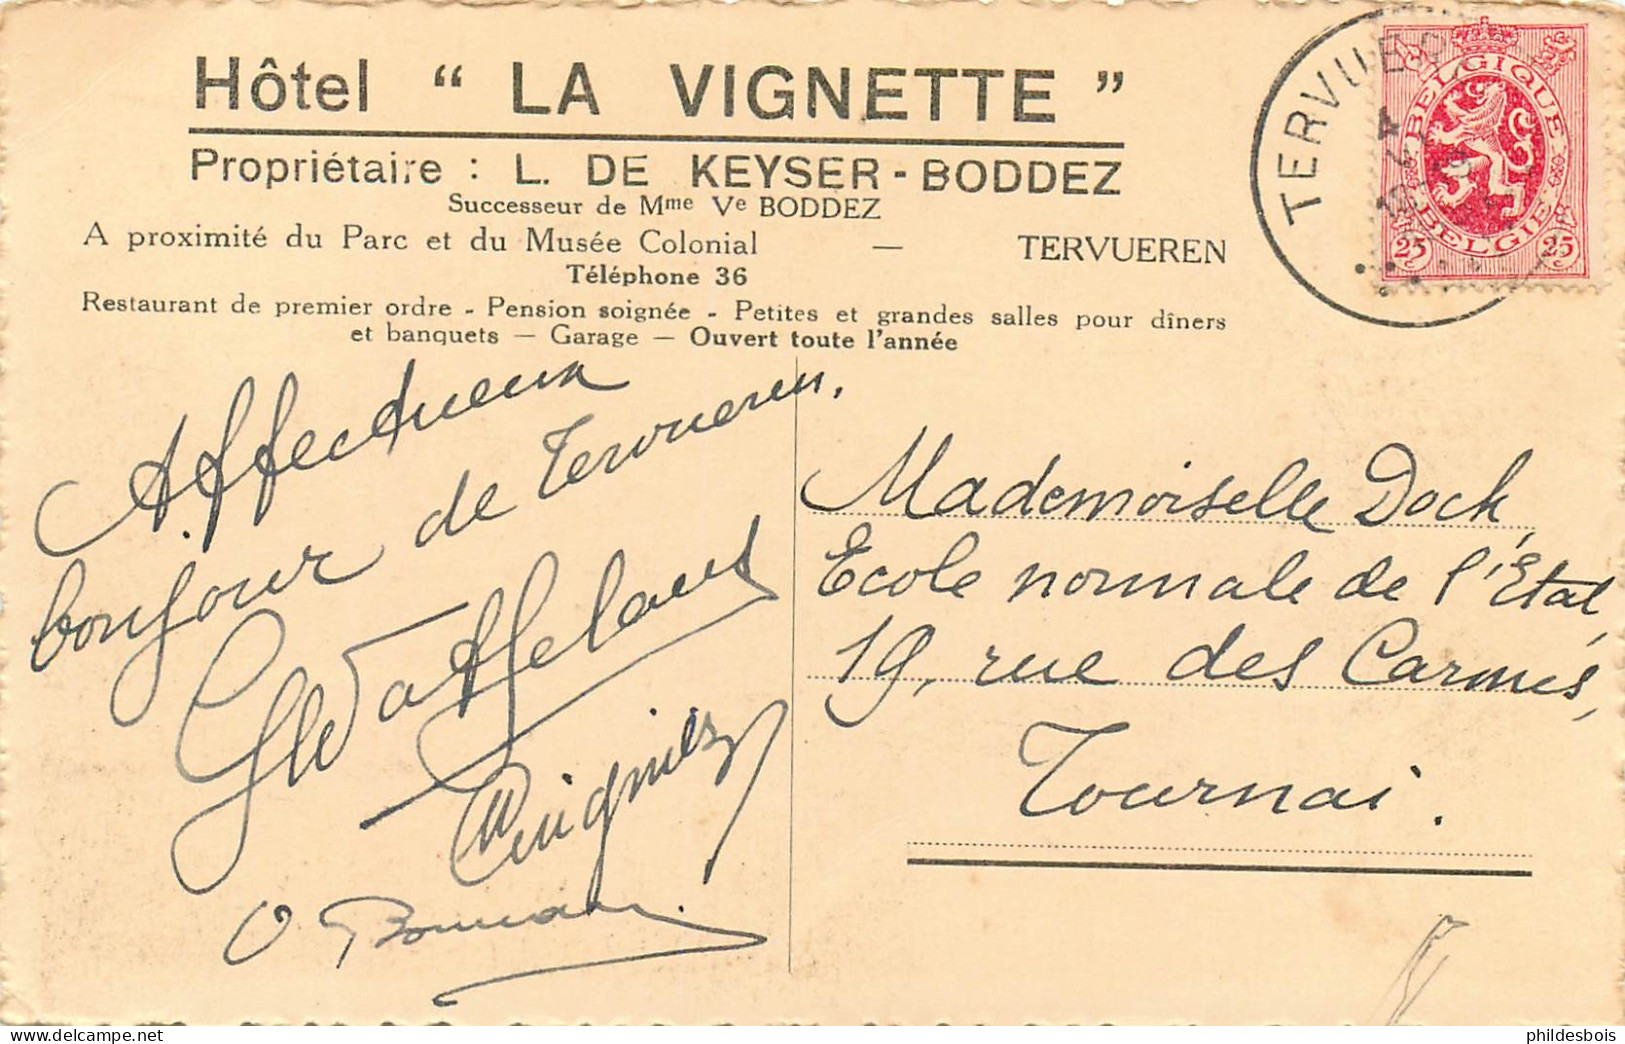 Hôtel “ LA VIGNETTE ”
Propriétaire : L. DE KEYSER - BODDEZ
Successeur de Mme Ve BODDEZ
A proximité du Parc et du Musée Colonial — TERVUEREN
Téléphone 36
Restaurant de premier ordre - Pension soignée - Petites et grandes salles pour dîners
et banquets — Garage — Ouvert toute l'année
BELGIQUE
BELGIE
25 25
TERVUE
Affectueux
bonjour de Tervueren.
Mademoiselle Dock,
Ecole normale de l'Etat,
19, rue des Carmes,
Tournai.
phildesbois